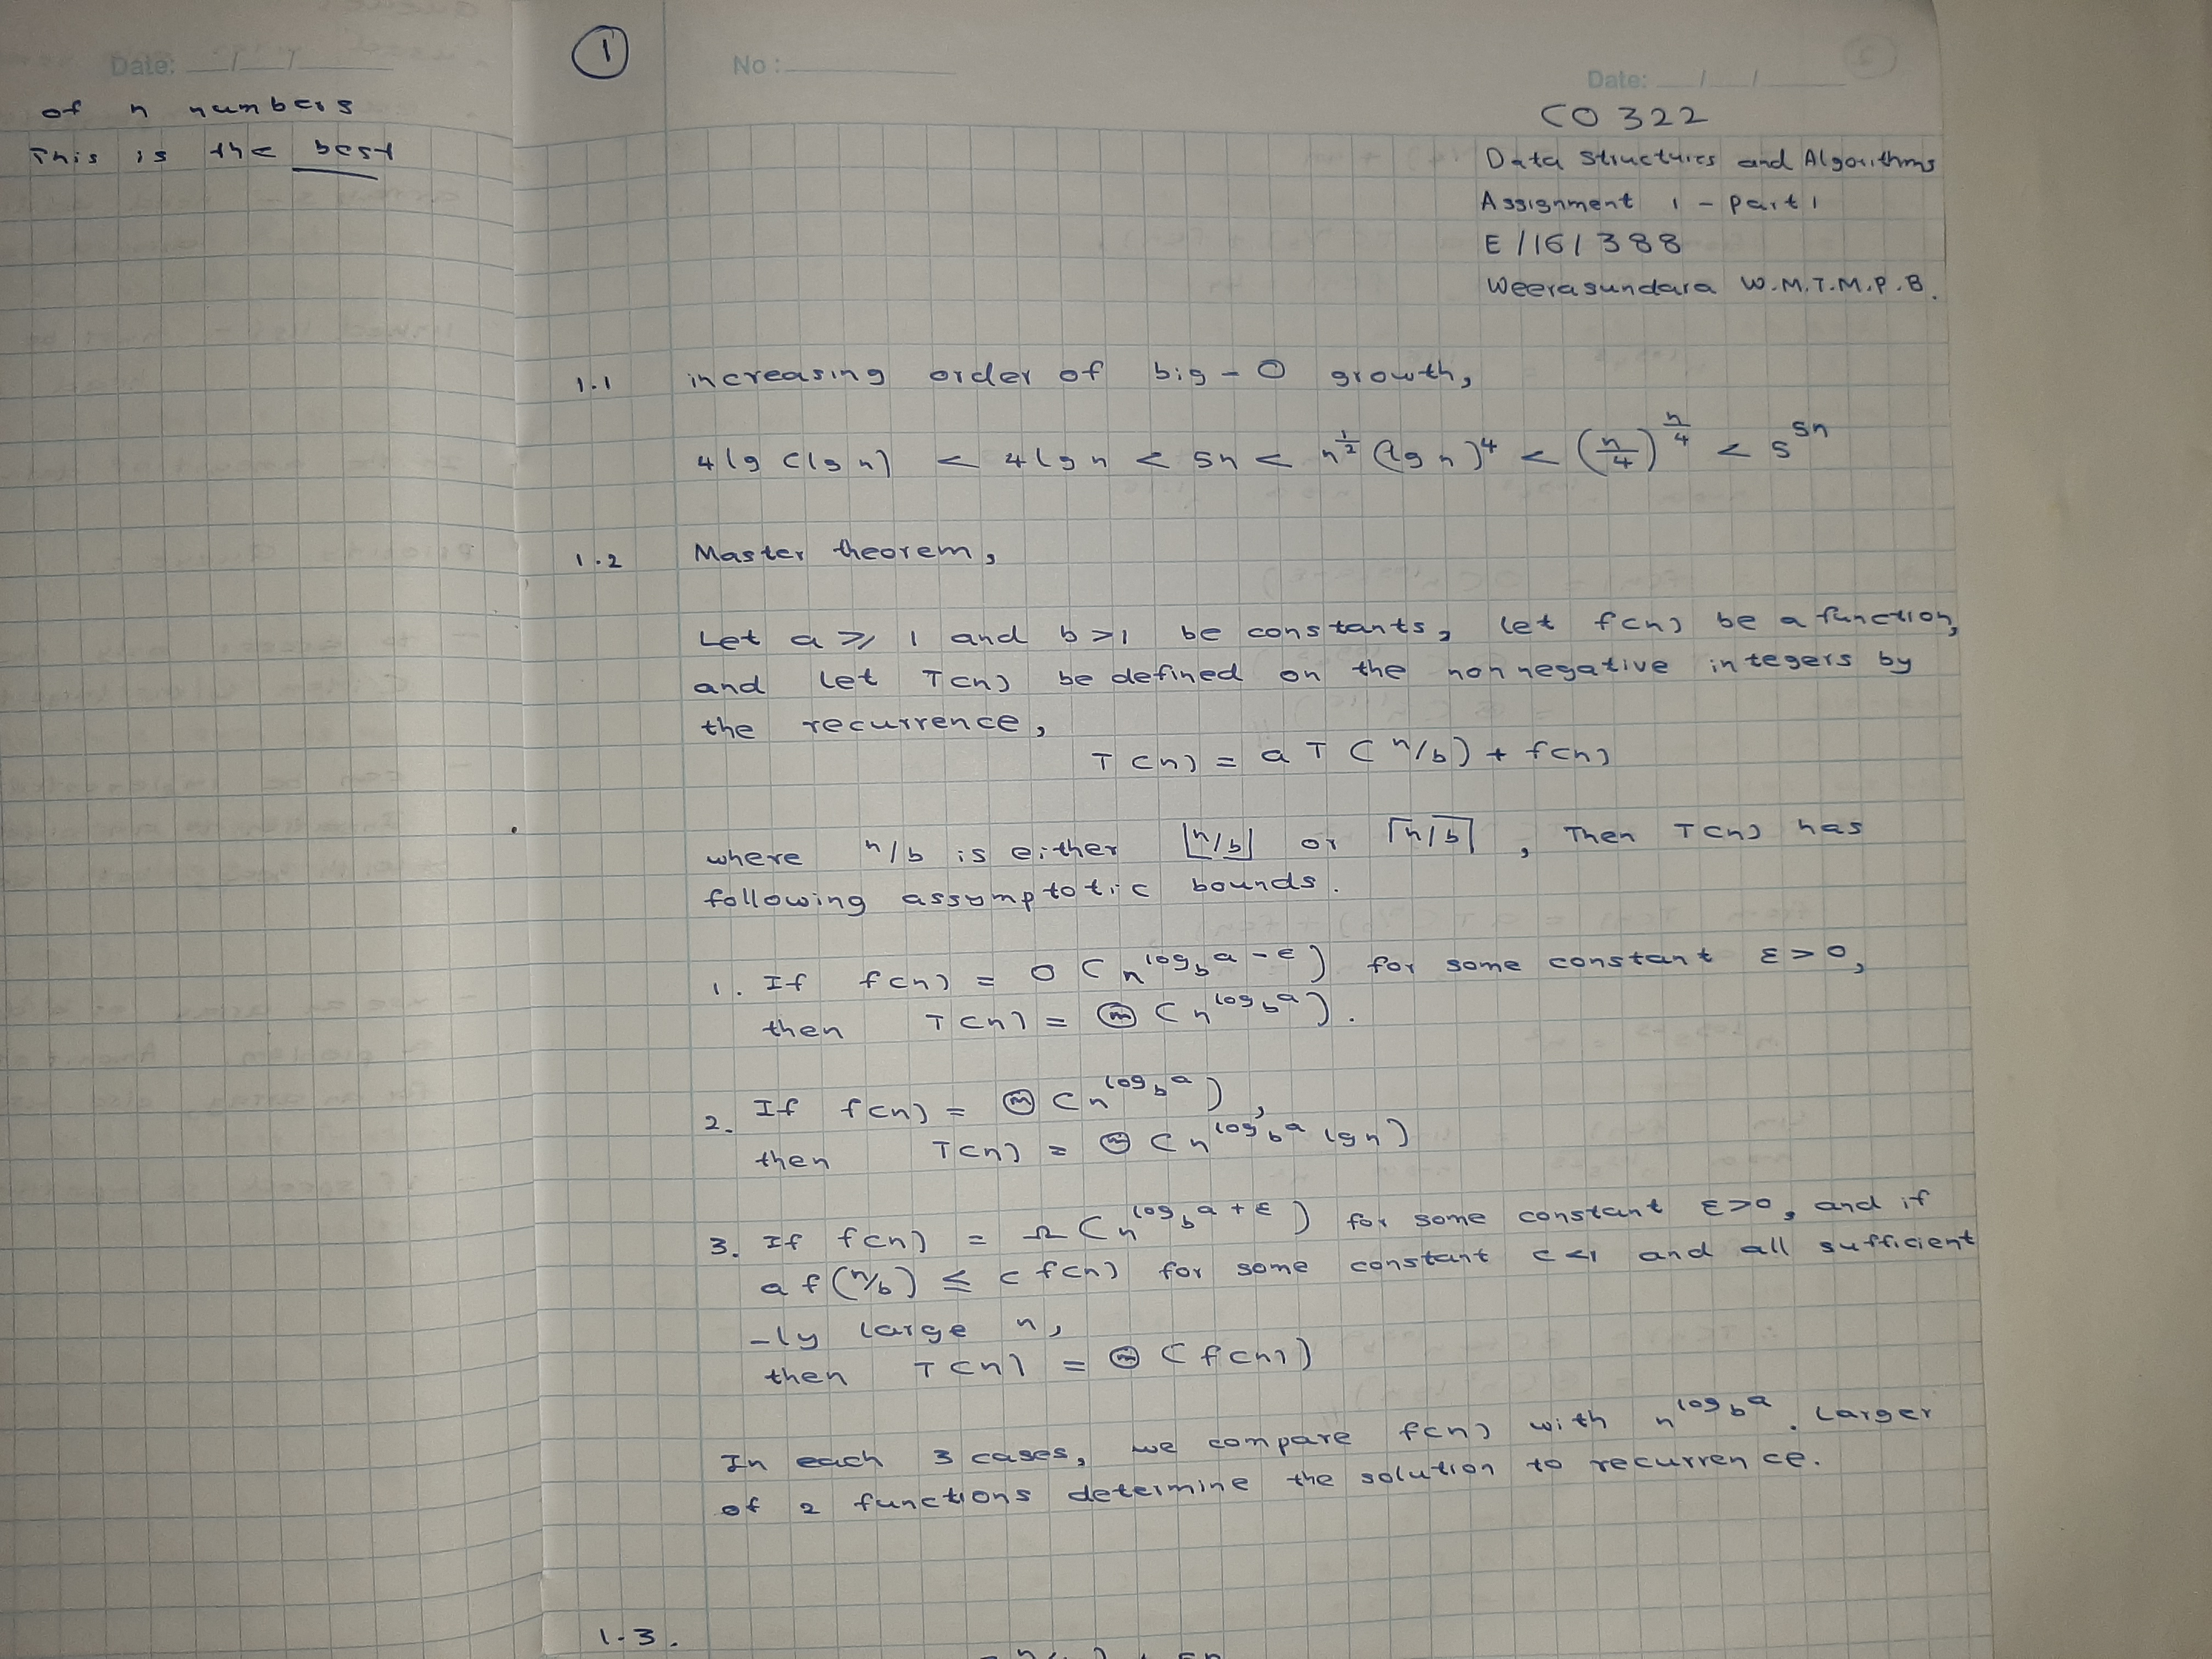 Date:
of n numbers
This is the best
1
No:
Date:
CO322
Data Structures and Algorithms
Assignment 1 - part 1
E/16/388
Weerasundara W.M.T.M.P.B.
1.1 increasing order of big-O growth,
4lg(lgn) < 4lgn < 5n < n^½(lgn)^4 < (n/4)^(n/4) < 5^(5n)
1.2 Master theorem,
Let a ≥ 1 and b>1 be constants, let f(n) be a function,
and let T(n) be defined on the nonnegative integers by
the recurrence,
T(n) = aT(n/b) + f(n)
where n/b is either ⌊n/b⌋ or ⌈n/b⌉, Then T(n) has
following assumptotic bounds.
1. If f(n) = O(n^(log_b a - ε)) for some constant ε>0,
then T(n) = Θ(n^(log_b a)).
2. If f(n) = Θ(n^(log_b a)),
then T(n) = Θ(n^(log_b a) lgn)
3. If f(n) = Ω(n^(log_b a + ε)) for some constant ε>0, and if
af(n/b) ≤ cf(n) for some constant c<1 and all sufficient
-ly large n,
then T(n) = Θ(f(n))
In each 3 cases, we compare f(n) with n^(log_b a). Larger
of 2 functions determine the solution to recurrence.
1.3.